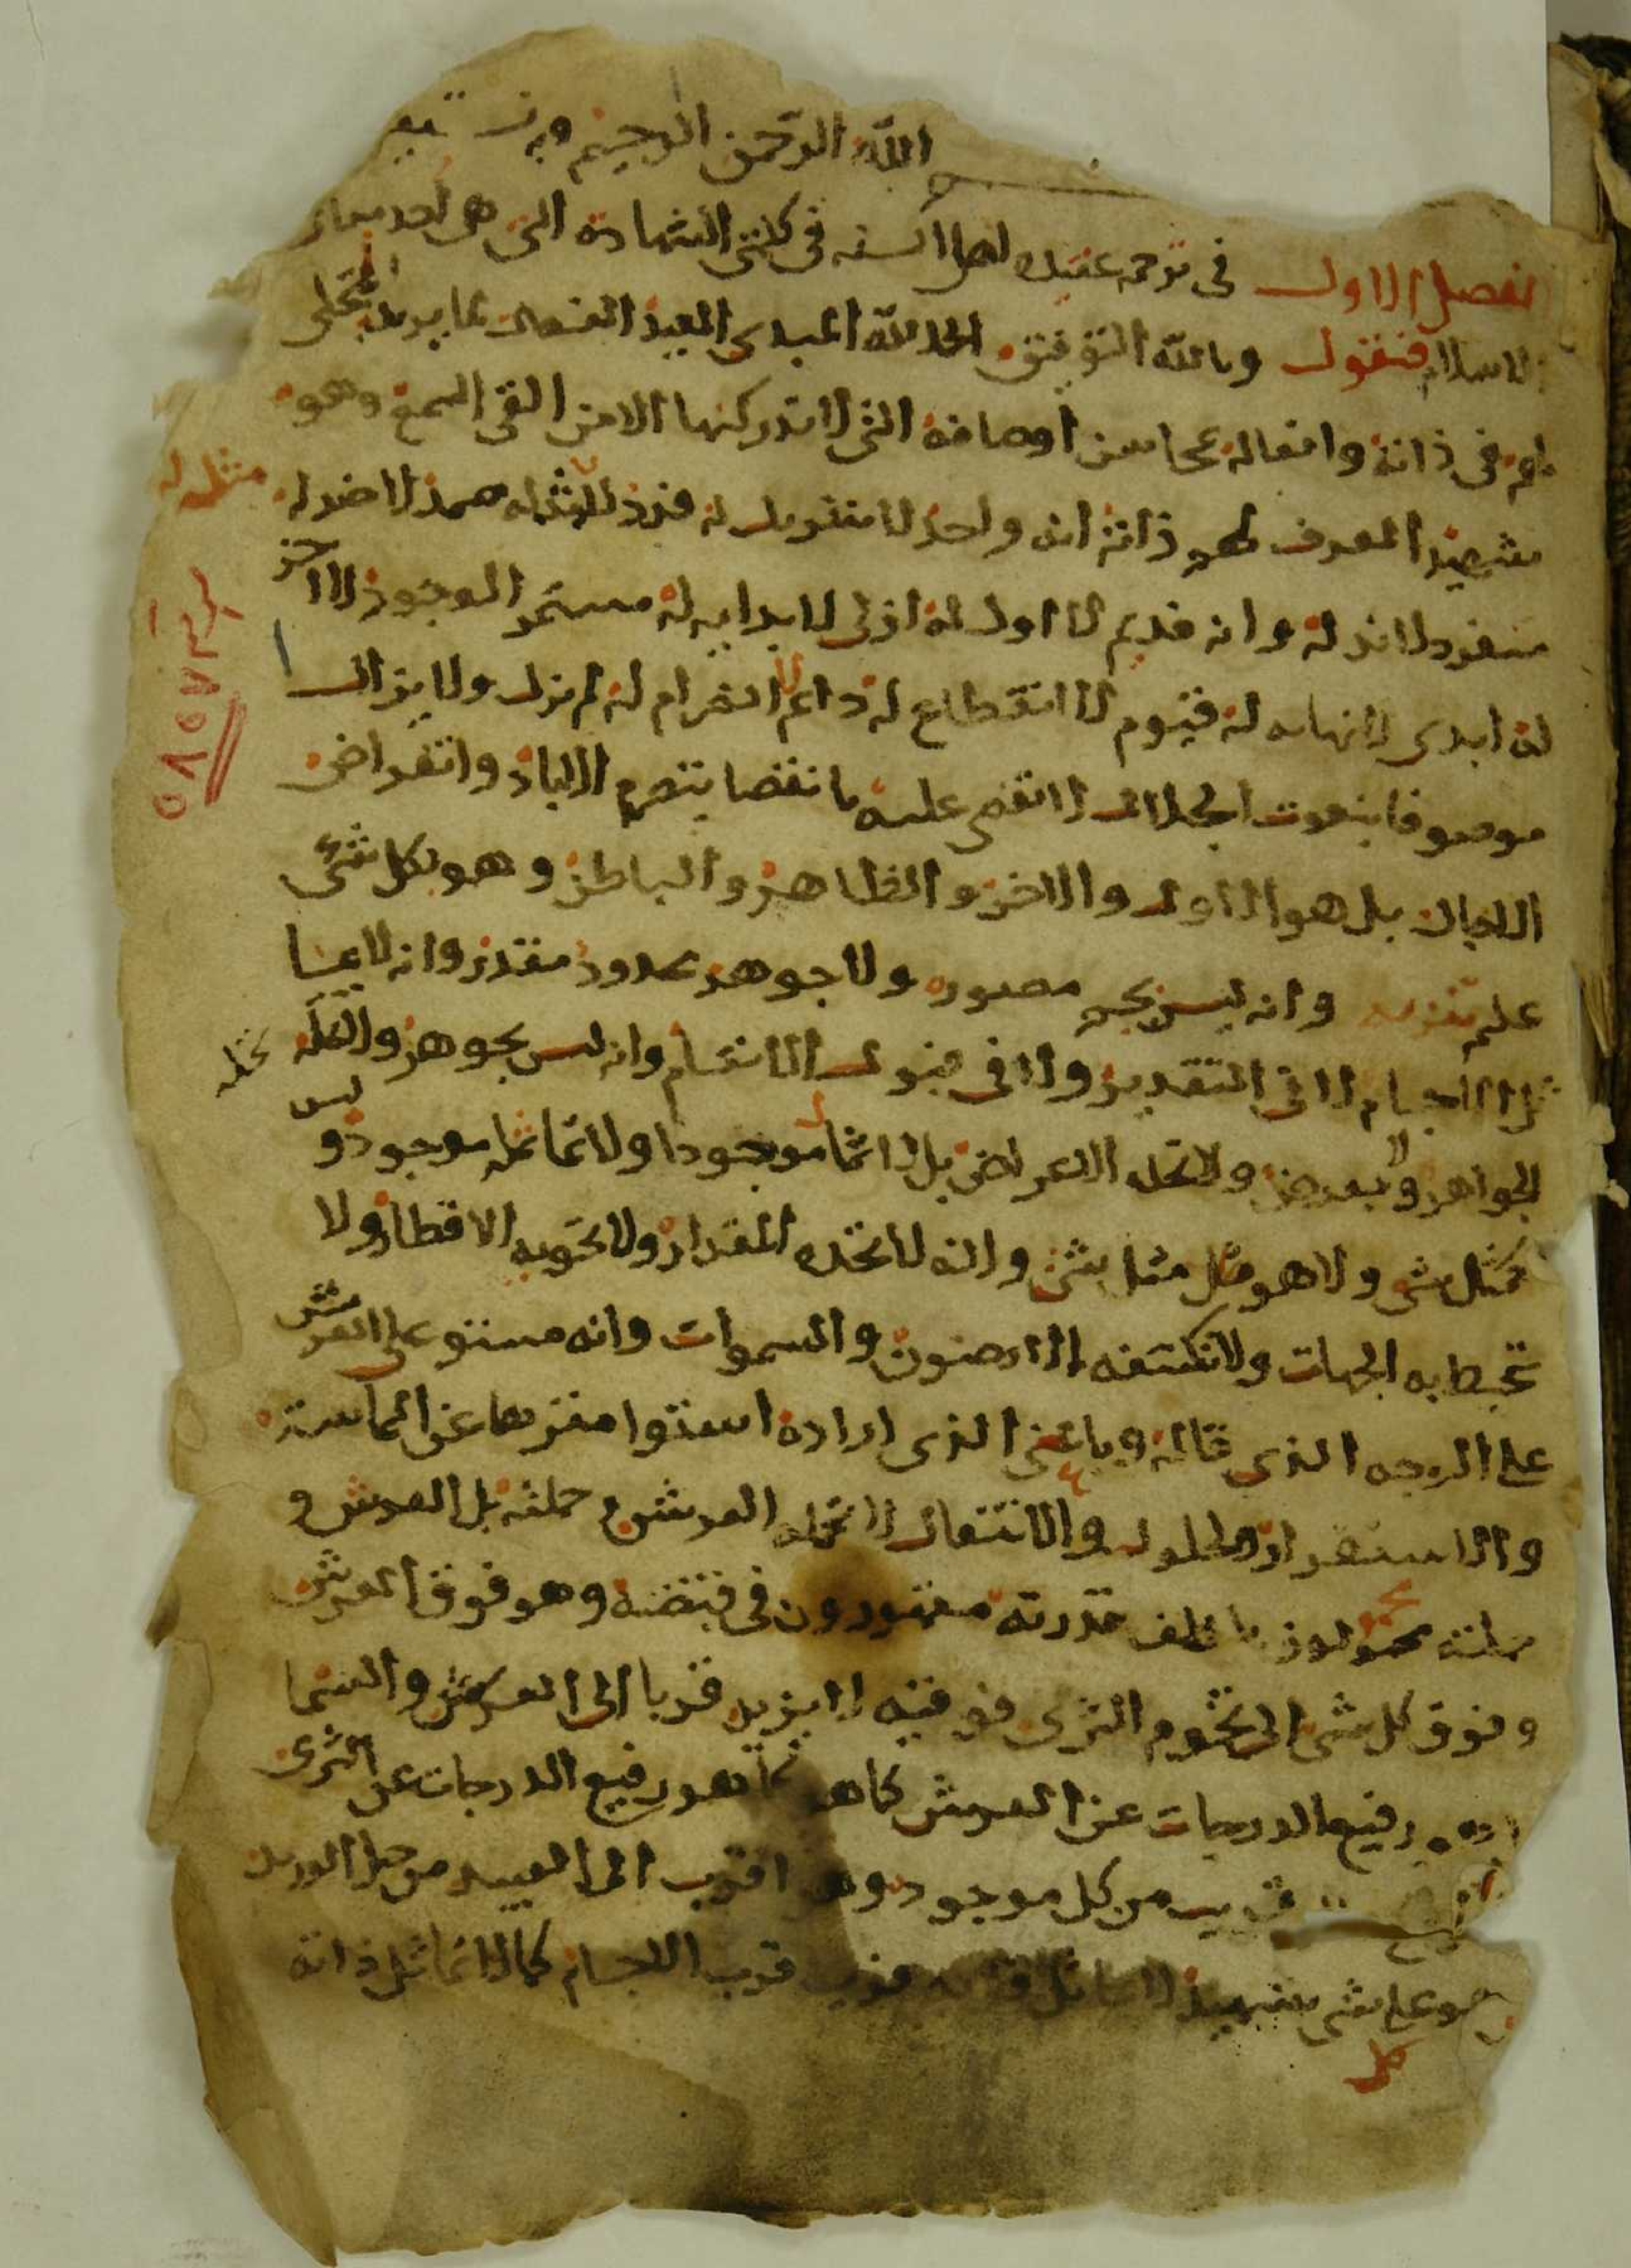 الله الرحمن الرحيم وبه نستعين
الفصل الاول في ترجمه عقيده اهل السنه في كلمتى الشهادة التى هى احد مباني
الاسلام فنقول وبالله التوفيق الحمد لله المبدى المعيد الفعال لما يريد المتجلى
لهم في ذاته وافعاله بمحاسن اوصافه التى لا تدركها الا من القى السمع وهو
شهيد المعرف لهم ذاته انه واحد لا شريك له فرد لا مثل له صمد لا ضد له
مثل له
منفرد لا ند له وانه قديم لا اول له ازلى لا بدايه له مستمر الوجود لا اخر
له ابدى لا نهايه له قيوم لا انقطاع له دائم لا انصرام له لم يزل ولا يزال
موصوفا بنعوت الجلال لا يقضى عليه بانقضا بتصرم الاباد وانقراض
الاجال بل هو الاول والاخر والظاهر والباطن وهو بكل شى
عليم تنزيه وانه ليس بجسم مصور ولا جوهر محدود مقدر وانه لا يماثل
الاجسام لا في التقدير ولا في قبول الانقسام وانه ليس بجوهر ولا تحله
تحله
الجواهر ولا بعرض ولا تحله الاعراض بل لا يماثل موجودا ولا يماثله موجود و ليس
كمثل شى ولا هو مثل مثل شى وانه لا يحده المقدار ولا تحويه الاقطار ولا
تحيط به الجهات ولا تكتنفه الارضون والسموات وانه مستو على العرش
على الوجه الذى قاله وبالمعنى الذى اراده استوا منزها عن المماسة
والاستقرار والحلول والانتقال لا يحمله العرش حملته بل العرش و
حملته محمولون بلطف قدرته مقهورون في قبضته وهو فوق العرش
وفوق كل شى الى تخوم الثرى فوقيته لا يزيد قربا الى العرش والسما
رفيع الدرجات عن العرش كما هو رفيع الدرجات عن الثرى
قريب من كل موجود وهو اقرب الى العبيد من حبل الوريد
وهو على شى شهيد لا يماثل قربه قرب الاجسام كما لا تماثل ذاته
كل